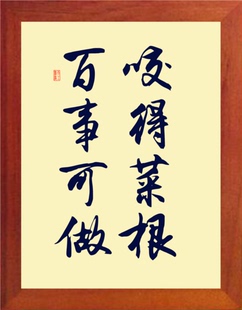 咬得菜根
百事可做